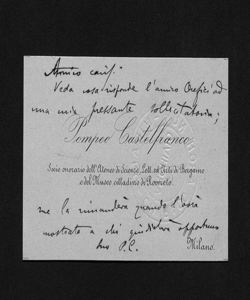 Amico cariss.
Veda cosa risponde l'amico Orefici ad
una mia pressante sollecitatoria;
Pompeo Castelfranco
Socio onorario dell'Ateneo di Scienze, Lett. ed Arti di Bergamo
e del Museo cittadino di Rovereto.
me la rimanderà quando l'avrà
mostrata a chi giudicherà opportuno
Suo P.C.
Milano.